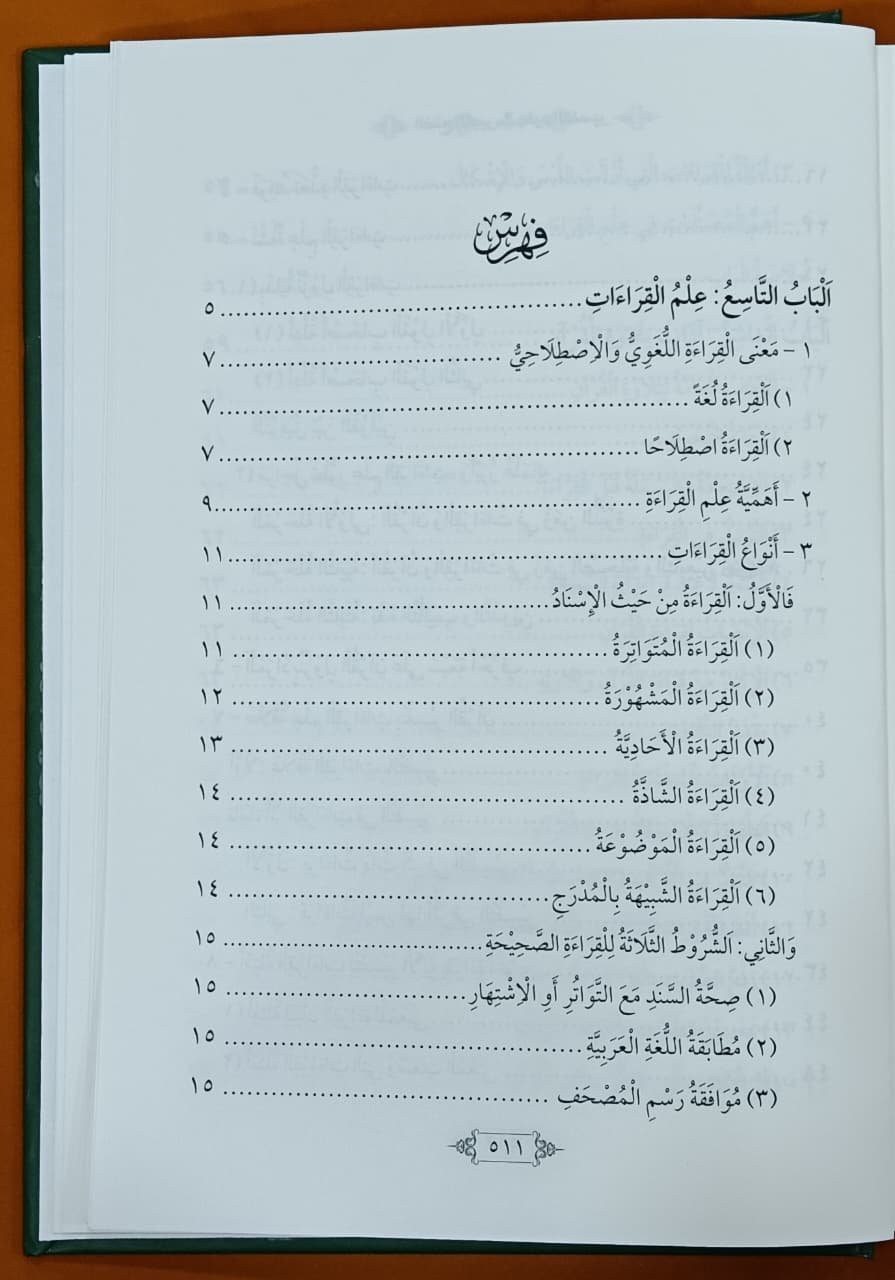 فِهْرِسْ
اَلْبَابُ التَّاسِعُ: عِلْمُ الْقِرَاءَاتِ ........ ٥
١ - مَعْنَى الْقِرَاءَةِ اللُّغَوِيُّ وَالْاِصْطِلَاحِيُّ ........ ٧
١) اَلْقِرَاءَةُ لُغَةً ........ ٧
٢) اَلْقِرَاءَةُ اصْطِلَاحًا ........ ٧
٢ - أَهَمِّيَّةُ عِلْمِ الْقِرَاءَةِ ........ ٩
٣ - أَنْوَاعُ الْقِرَاءَاتِ ........ ١١
فَالْأَوَّلُ: اَلْقِرَاءَةُ مِنْ حَيْثُ الْإِسْنَادُ ........ ١١
(١) اَلْقِرَاءَةُ الْمُتَوَاتِرَةُ ........ ١١
(٢) اَلْقِرَاءَةُ الْمَشْهُوْرَةُ ........ ١٢
(٣) اَلْقِرَاءَةُ الْأَحَادِيَّةُ ........ ١٣
(٤) اَلْقِرَاءَةُ الشَّاذَّةُ ........ ١٤
(٥) اَلْقِرَاءَةُ الْمَوْضُوْعَةُ ........ ١٤
(٦) اَلْقِرَاءَةُ الشَّبِيْهَةُ بِالْمُدْرَجِ ........ ١٤
وَالثَّانِي: اَلشُّرُوْطُ الثَّلَاثَةُ لِلْقِرَاءَةِ الصَّحِيْحَةِ ........ ١٥
(١) صِحَّةُ السَّنَدِ مَعَ التَّوَاتُرِ أَوِ الْاِشْتِهَارِ ........ ١٥
(٢) مُطَابَقَةُ اللُّغَةِ الْعَرَبِيَّةِ ........ ١٥
(٣) مُوَافَقَةُ رَسْمِ الْمُصْحَفِ ........ ١٥
٥١١